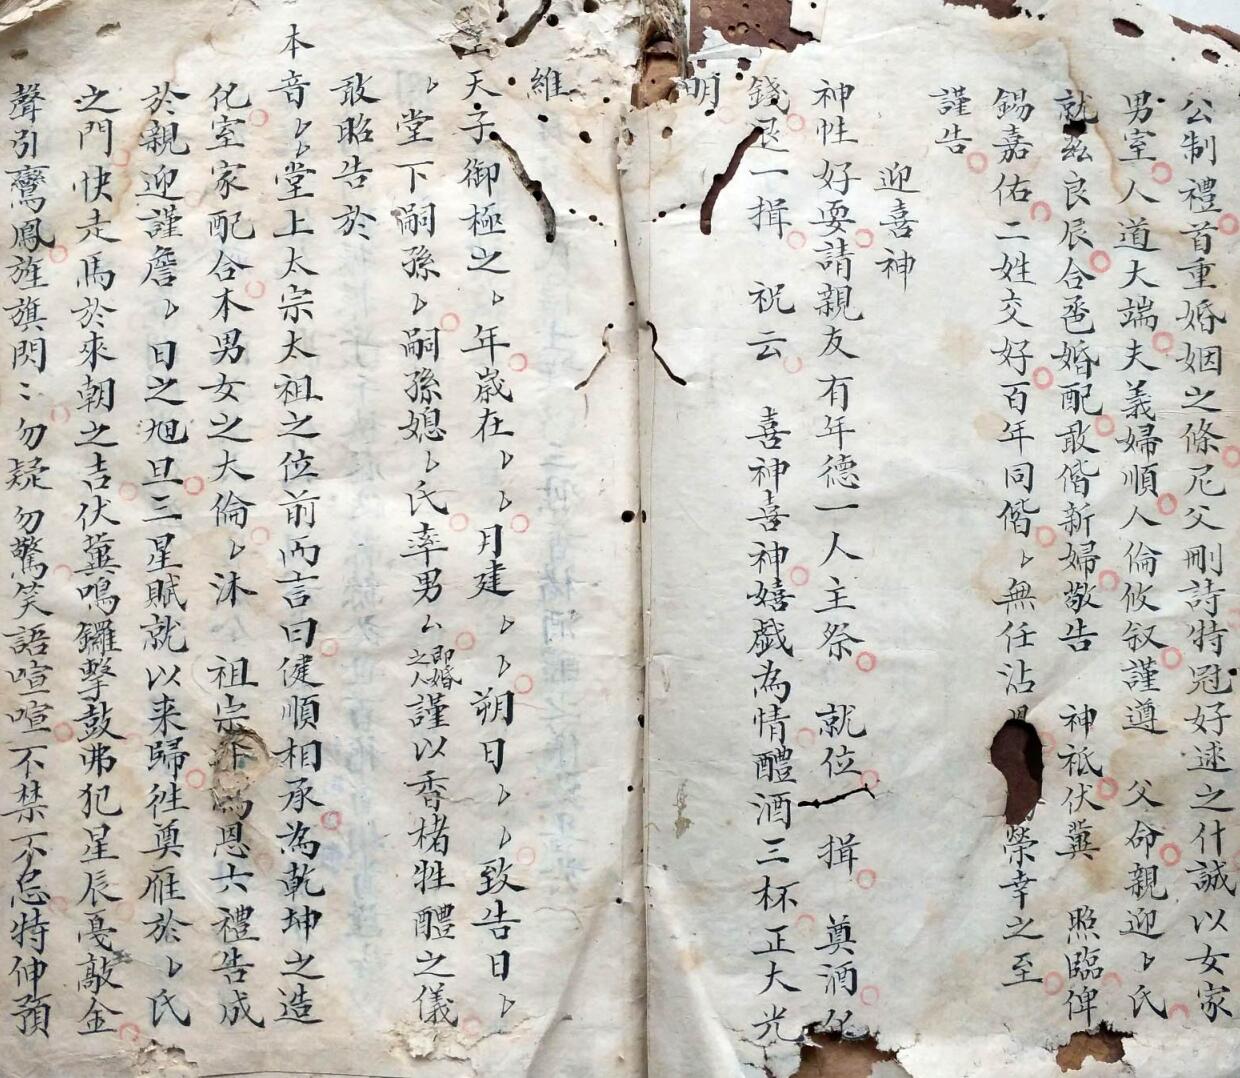 公制禮首重婚姻之條尼父刪詩特冠好逑之什誠以女家
男室人道大端夫義婦順人倫攸叙謹遵 父命親迎〻氏
就兹良辰合卺婚配敢偕新婦敬告 神祇伏冀 照臨俾
錫嘉佑二姓交好百年同偕〻無任沾 榮幸之至
謹告
迎喜神
神性好耍請親友有年德一人主祭 就位 揖 奠酒化
錢退一揖 祝云 喜神喜神嬉戲為情醴酒三杯正大光
明
維
天子御極之〻年歲在〻〻月建〻〻朔日〻〻致告日〻
〻堂下嗣孫〻嗣孫媳〻氏率男厶即婚之人謹以香楮牲醴之儀
敢昭告於
本音〻〻堂上太宗太祖之位前而言曰健順相承為乾坤之造
化室家配合本男女之大倫〻沐 祖宗 恩六禮告成
於親迎謹詹〻日之旭旦三星賦就以来歸徃奠雁於〻氏
之門快走馬於來朝之吉伏冀鳴鑼擊鼓弗犯星辰戞敲金
聲引鸞鳳旌旗閃〻勿疑勿驚笑語喧喧不禁不忌特伸預